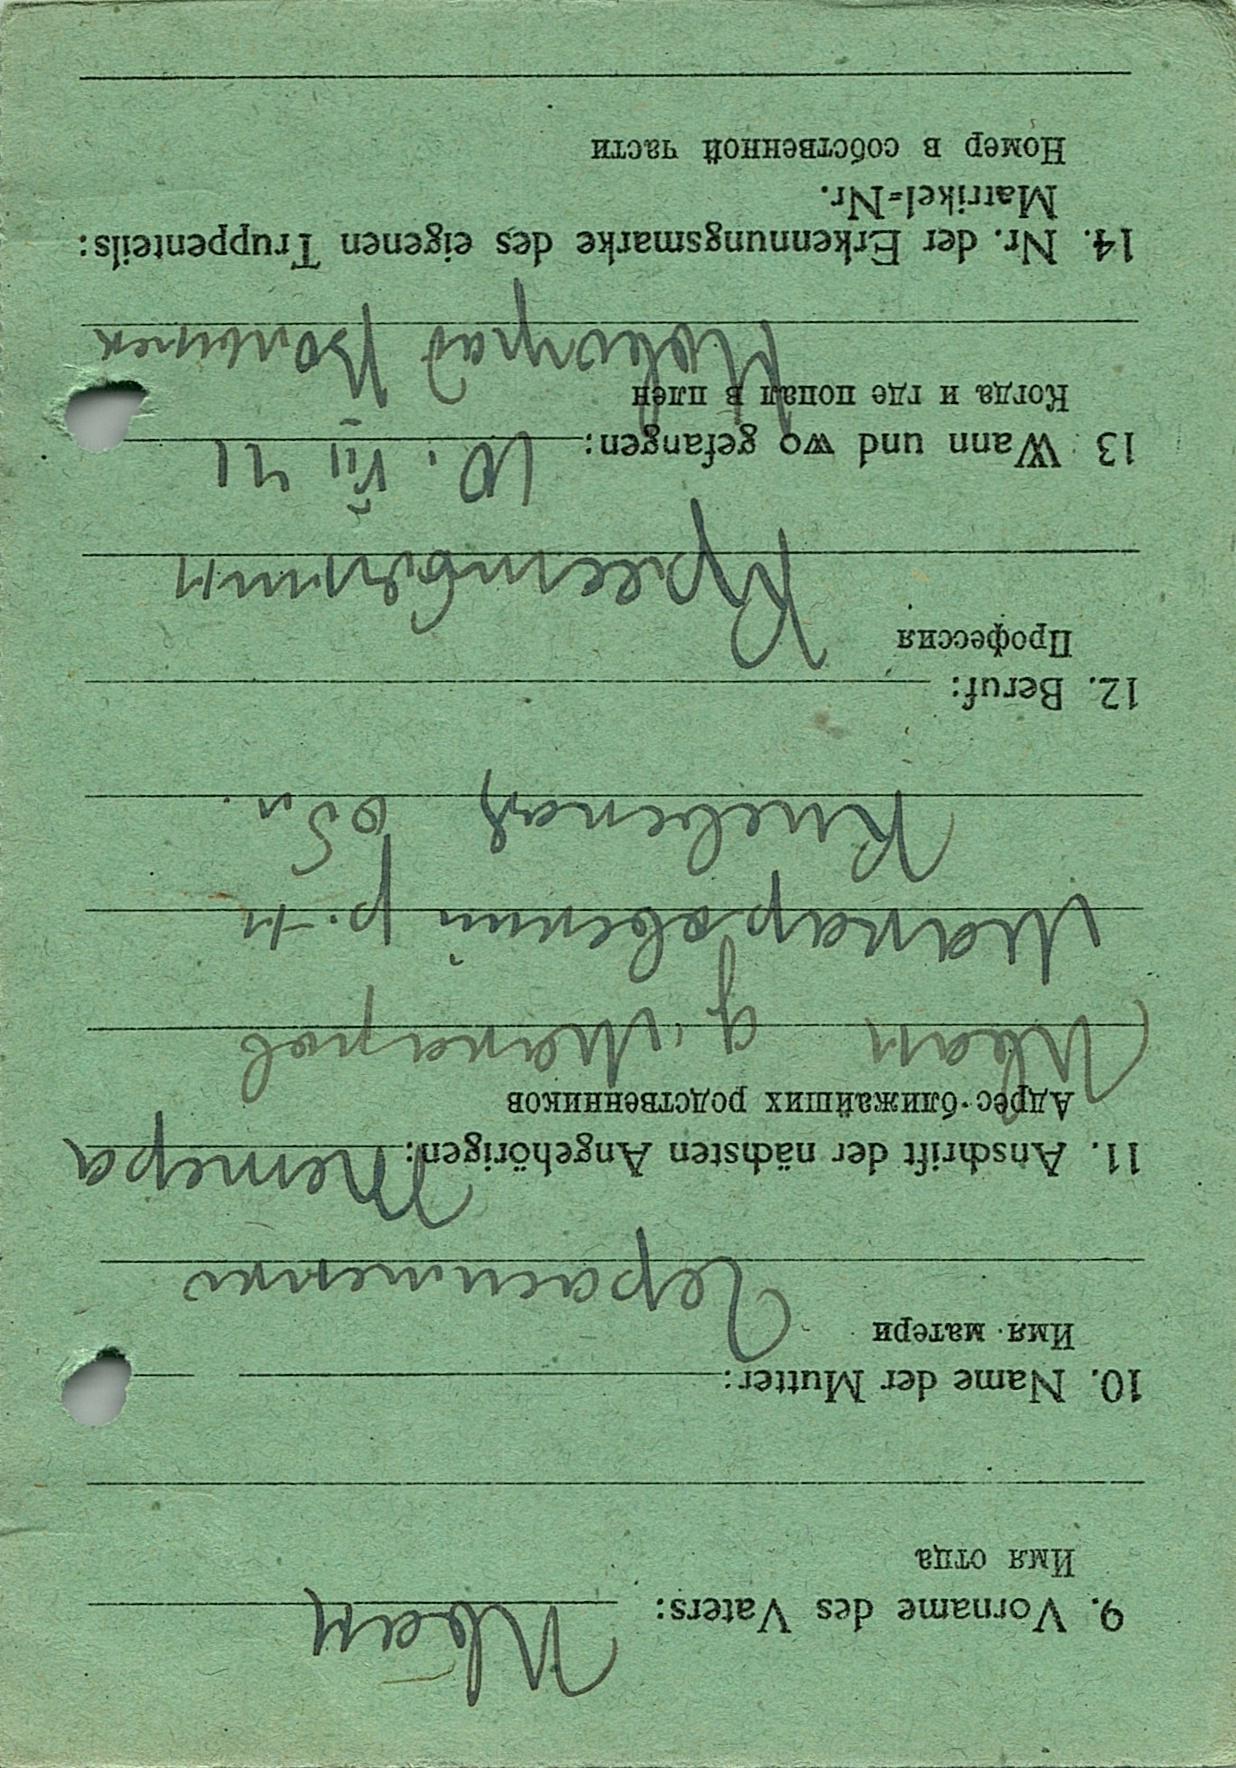 9. Vorname des Vaters: Иван
Имя отца
10. Name der Mutter:
Имя матери
Герасименко
11. Anschrift der nächsten Angehörigen:
Адрес ближайших родственников
Иван д. Макаров
Макаровский р-н
Киевская обл.
12. Beruf:
Профессия
Крестьянин
13 Wann und wo gefangen: 10. VII 41
Когда и где попал в плен
Новоград Волынск
14. Nr. der Erkennungsmarke des eigenen Truppenteils:
Matrikel=Nr.
Номер в собственной части